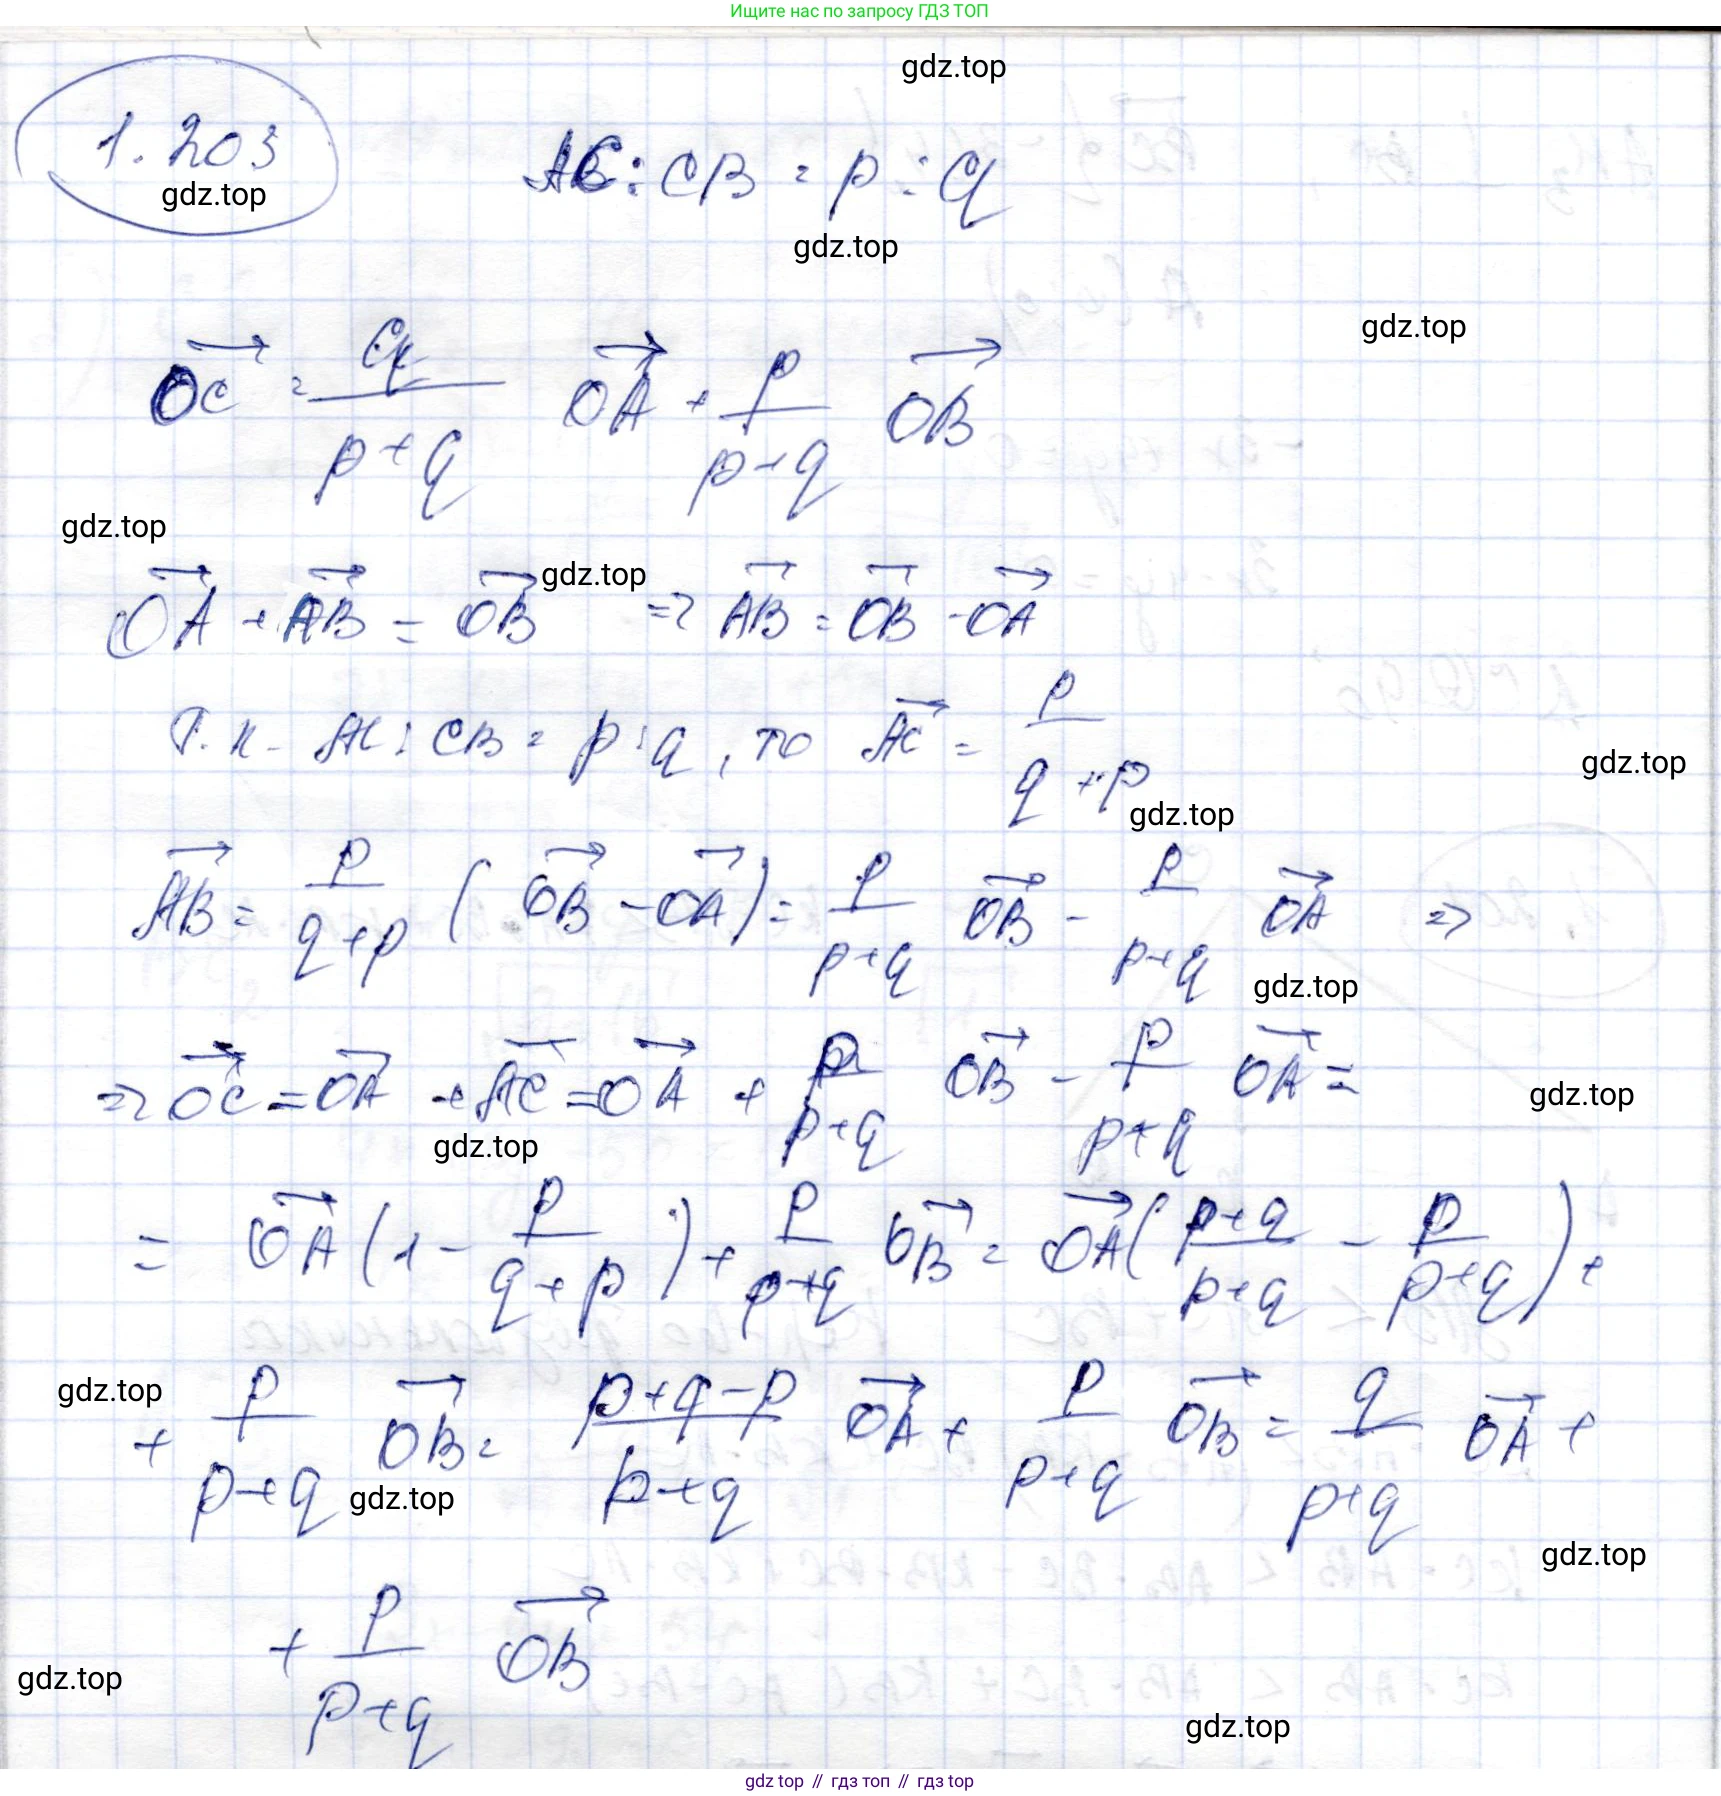 Ищите нас по запросу ГДЗ ТОП
gdz.top
1.203
AC : CB = p : q
gdz.top
gdz.top
gdz.top
OC⃗ = q/(p+q) OA⃗ + p/(p+q) OB⃗
gdz.top
gdz.top
OA⃗ + AB⃗ = OB⃗ => AB⃗ = OB⃗ - OA⃗
Т.к. AC : CB = p : q, то AC⃗ = p/(q+p)
gdz.top
gdz.top
AB⃗ = p/(q+p) (OB⃗ - OA⃗) = p/(p+q) OB⃗ - p/(p+q) OA⃗ =>
gdz.top
=> OC⃗ = OA⃗ + AC⃗ = OA⃗ + p/(p+q) OB⃗ - p/(p+q) OA⃗ =
gdz.top
gdz.top
= OA⃗ (1 - p/(q+p)) + p/(p+q) OB⃗ = OA⃗ ((p+q)/(p+q) - p/(p+q)) +
gdz.top
+ p/(p+q) OB⃗ = (p+q-p)/(p+q) OA⃗ + p/(p+q) OB⃗ = q/(p+q) OA⃗ +
gdz.top
gdz.top
+ p/(p+q) OB⃗
gdz.top
gdz.top
gdz top // гдз топ // gdz top